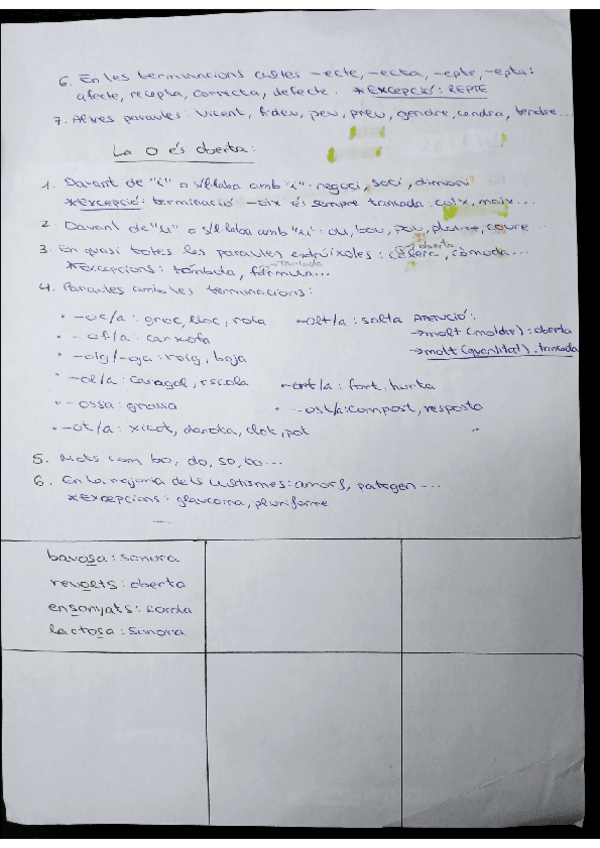 6. En les terminacions cultes -ecte, -ecta, -epte, -epta:
afecte, recepta, correcta, defecte. *EXCEPCIÓ: REPTE
7. Altres paraules: vicent, fideu, peu, preu, gendre, cendra, tendre...
La O és oberta:
1. Davant de "i" o síl·laba amb "i": negoci, soci, dimoni
*EXCEPCIÓ: terminació -oix és sempre tancada: coix, moix...
2. Davant de "u" o síl·laba amb "u": ou, bou, pou, ploure, coure...
oberta
3. En quasi totes les paraules esdrúixoles: còlera, còmoda...
tancada
*Excepcions: tómbola, fórmula...
4. Paraules amb les terminacions:
• -oc/a: groc, lloc, roca -olt/a: solta ATENCIÓ:
• -of/a: carxofa → molt (moldre): oberta
• -oig/-oja: roig, boja → molt (quantitat): tancada
• -ol/a: caragol, escola -ort/a: fort, horta
• -ossa: grossa • -ost/a: compost, resposta
• -ot/a: xicot, granota, clot, pot
5. Mots com bo, do, so, to...
6. En la majoria dels cultismes: amorf, patogen...
*Excepcions: glaucoma, pluriforme
bavosa: sonora
revolts: oberta
ensonyats: sorda
lactosa: sonora